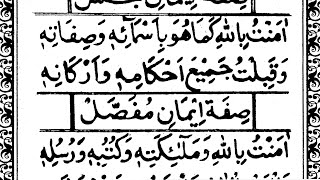 صِفَةُ اِيْمَانِ مُجْمَلْ
اٰمَنْتُ بِاللهِ كَمَا هُوَ بِاَسْمَآئِهٖ وَصِفَاتِهٖ
وَقَبِلْتُ جَمِيْعَ اَحْكَامِهٖ وَاَرْكَانِهٖ
صِفَةُ اِيْمَانِ مُفَصَّلْ
اٰمَنْتُ بِاللهِ وَمَلٰٓئِكَتِهٖ وَكُتُبِهٖ وَرُسُلِهٖ